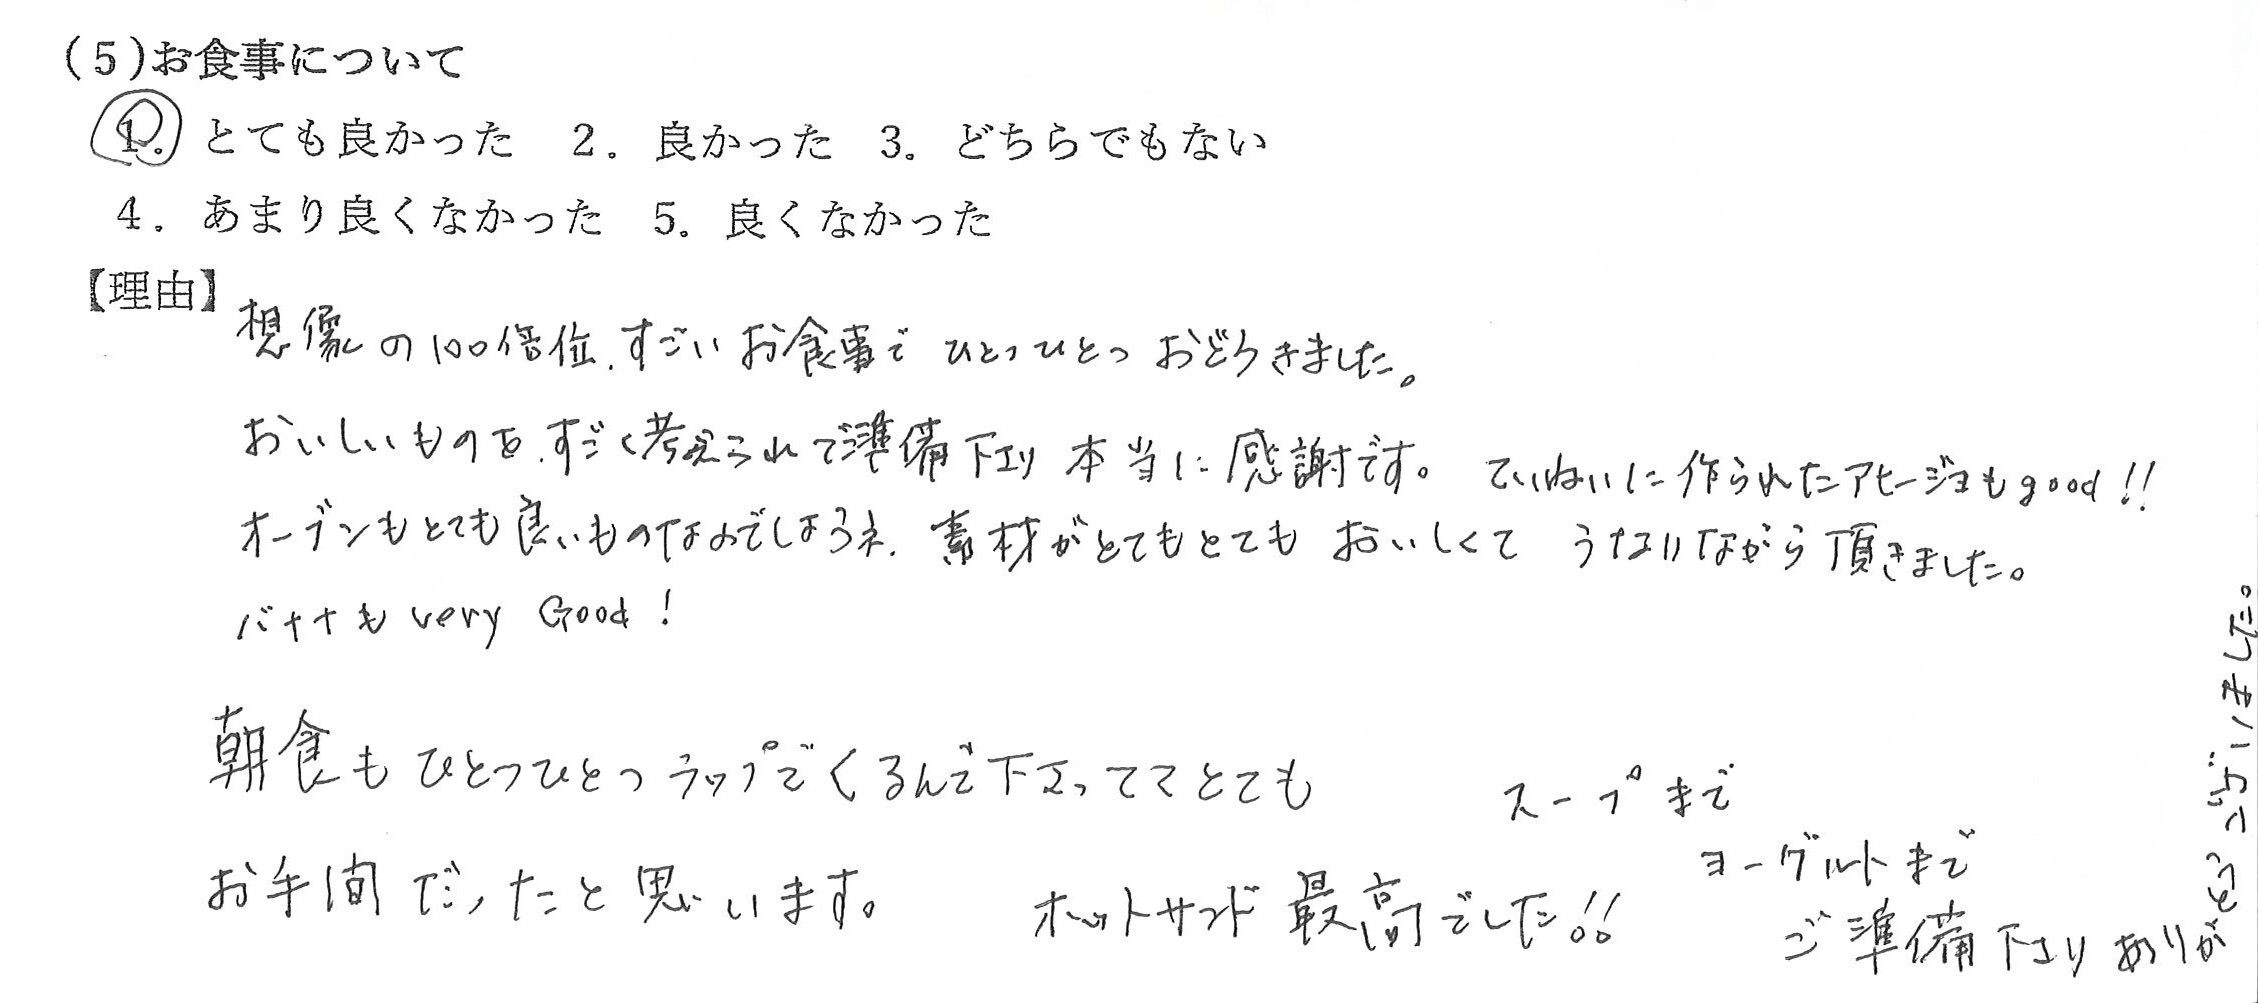 (5)お食事について
1. とても良かった 2. 良かった 3. どちらでもない
4. あまり良くなかった 5. 良くなかった
【理由】
想像の100倍位、すごいお食事で ひとつひとつ おどろきました。
おいしいものを、すごく考えられてご準備下さり 本当に感謝です。 ていねいに作られたアヒージョもgood!!
オーブンもとても良いものなのでしょうネ、素材がとてもとても おいしくて うなりながら頂きました。
バナナも very Good!
朝食も ひとつひとつ ラップでくるんで下さってて とても
お手間だったと思います。
ホットサンド 最高でした!!
スープまで
ヨーグルトまで
ご準備下さり ありがとうございました。